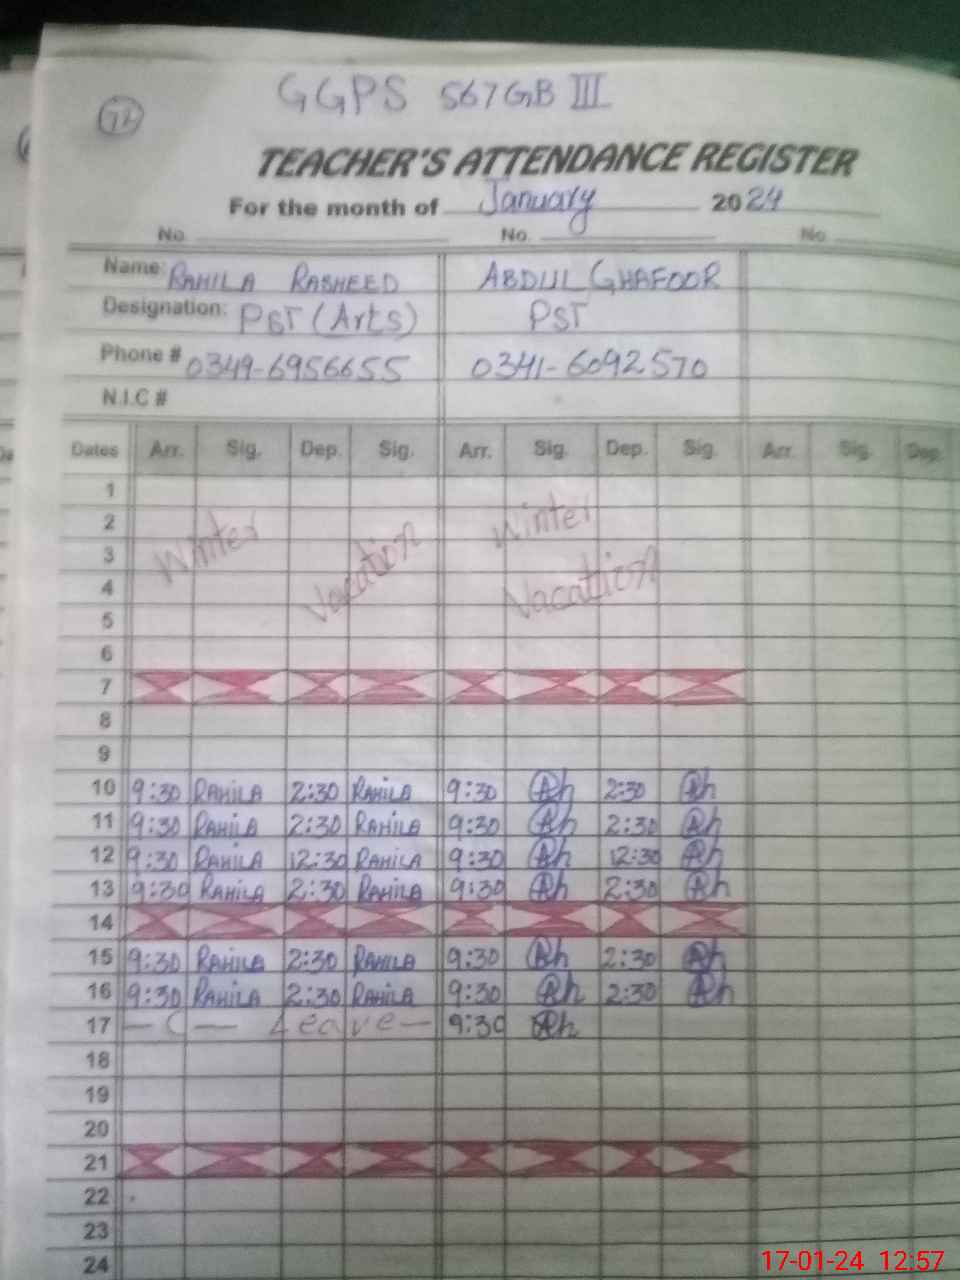 GGPS 567GB III
72
TEACHER'S ATTENDANCE REGISTER
For the month of January 2024
No. No. No
Name: RAHILA RASHEED ABDUL GHAFOOR
Designation: PST (Arts) PST
Phone # 0349-6956655 0341-6092570
N.I.C #
Dates Arr. Sig. Dep. Sig. Arr. Sig. Dep. Sig. Arr. Sig. Dep.
1
2 Winter Winter
3
4 Vacation Vacattion
5
6
7
8
9
10 9:30 RAHILA 2:30 RAHILA 9:30 Ah 2:30 Ah
11 9:30 RAHILA 2:30 RAHILA 9:30 Ah 2:30 Ah
12 9:30 RAHILA 12:30 RAHILA 9:30 Ah 12:30 Ah
13 9:30 RAHILA 2:30 RAHILA 9:30 Ah 2:30 Ah
14
15 9:30 RAHILA 2:30 RAHILA 9:30 Ah 2:30 Ah
16 9:30 RAHILA 2:30 RAHILA 9:30 Ah 2:30 Ah
17 — C — Leave — 9:30 Ah
18
19
20
21
22
23
24
17-01-24 12:57